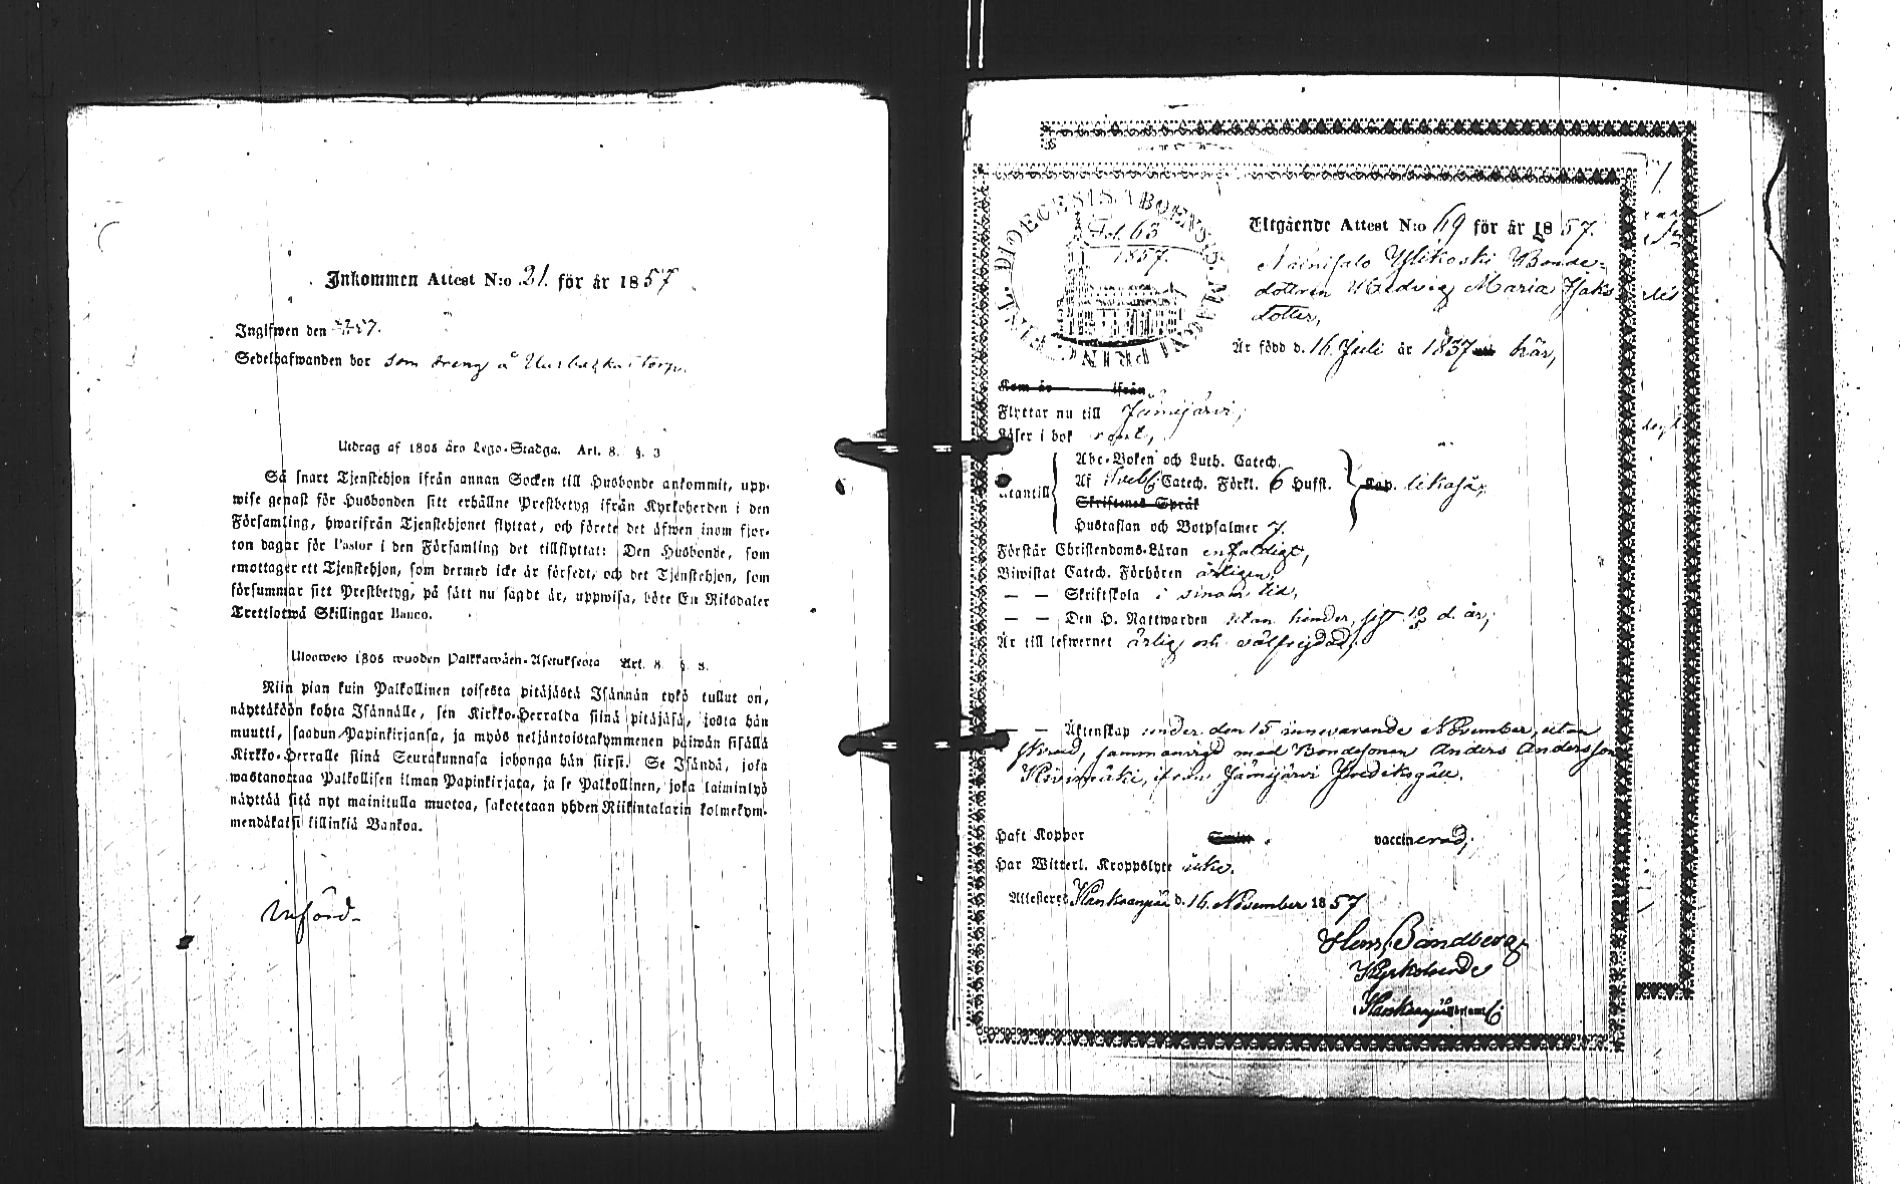 Inkommen Attest N:o 21. för år 1857
Inglfwen den
Sedelhafwanden bor som dreng å torp.
Utdrag af 1805 års Lego-Stadga. Art. 8. §. 3
Så snart Tjenstehjon ifrån annan Socken till Husbonde ankommit, upp-
wise genast för Husbonden sitt erhållne Prestbetyg ifrån Kyrkoherden i den
Församling, hwarifrån Tjenstehjonet flyttat, och förete det äfwen inom fjor-
ton dagar för Pastor i den Församling det tillflyttat: Den Husbonde, som
emottager ett Tjenstehjon, som dermed icke är försedt, och det Tjenstehjon, som
försummar sitt Prestbetyg, på sätt nu sagdt är, uppwisa, böte En Riksdaler
Trettiotwå Skillingar Banco.
Ulosweto 1805 wuoden Palkkawäen-Asetuksesta Art. 8 §. 8.
Niin pian kuin Palkollinen toisesta pitäjästä Isännän tykö tullut on,
näyttäköön kohta Isännälle, sen Kirkko-Herralda siinä pitäjäsä, josta hän
muutti, saadun Papinkirjansa, ja myös neljäntoistakymmenen päiwän sisällä
Kirkko-Herralle siinä Seurakunnasa johonga hän siirsi. Se Isändä, joka
wastanottaa Palkollisen ilman Papinkirjata, ja se Palkollinen, joka laiminlyö
näyttää sitä nyt mainitulla muotoa, sakotetaan yhden Riikintalarin kolmekym-
mendäkaksi killinkiä Bankoa.
Införd
SIGILL. DIOECESIS ABOENSIS. MAGNI PRINC. FINL.
Fol. 63
1857.
Utgående Attest N:o 69 för år 1857.
Niinisalo Ylikoski Bonde-
dottren Hedvig Maria Jaks
dotter,
Är född d. 16 Juli år 1837 här,
Kom år ifrån
Flyttar nu till Jämijärvi,
Läser i bok swt,
Utantill
Abc-Boken och Luth. Catech.
Af Svebil. Catech. Förkl. 6 Hufst.
Skriftenes Språk
Hustaflan och Botpsalmer 7.
Kap. likaså,
Förstår Christendoms-Läran enfaldigt,
Biwistat Catech. Förhören årligen,
— — Skriftskola i sinom tid,
— — Den H. Nattwarden utan hinder, sist 10/5 d. år,
Är till lefwernet ärlig och välfrejdad,
— — Äktenskap under den 15 innevarande November, utan
med Bondesonen Anders Andersson
ifrån Jämijärvi Prediksgäll.
Haft Koppor vaccinerad,
Har Witterl. Kroppslyte icke.
Attesteras Kankaanpää d. 16 November 1857
Hens. Bandberg
Kyrkoherde
i Kankaanpää